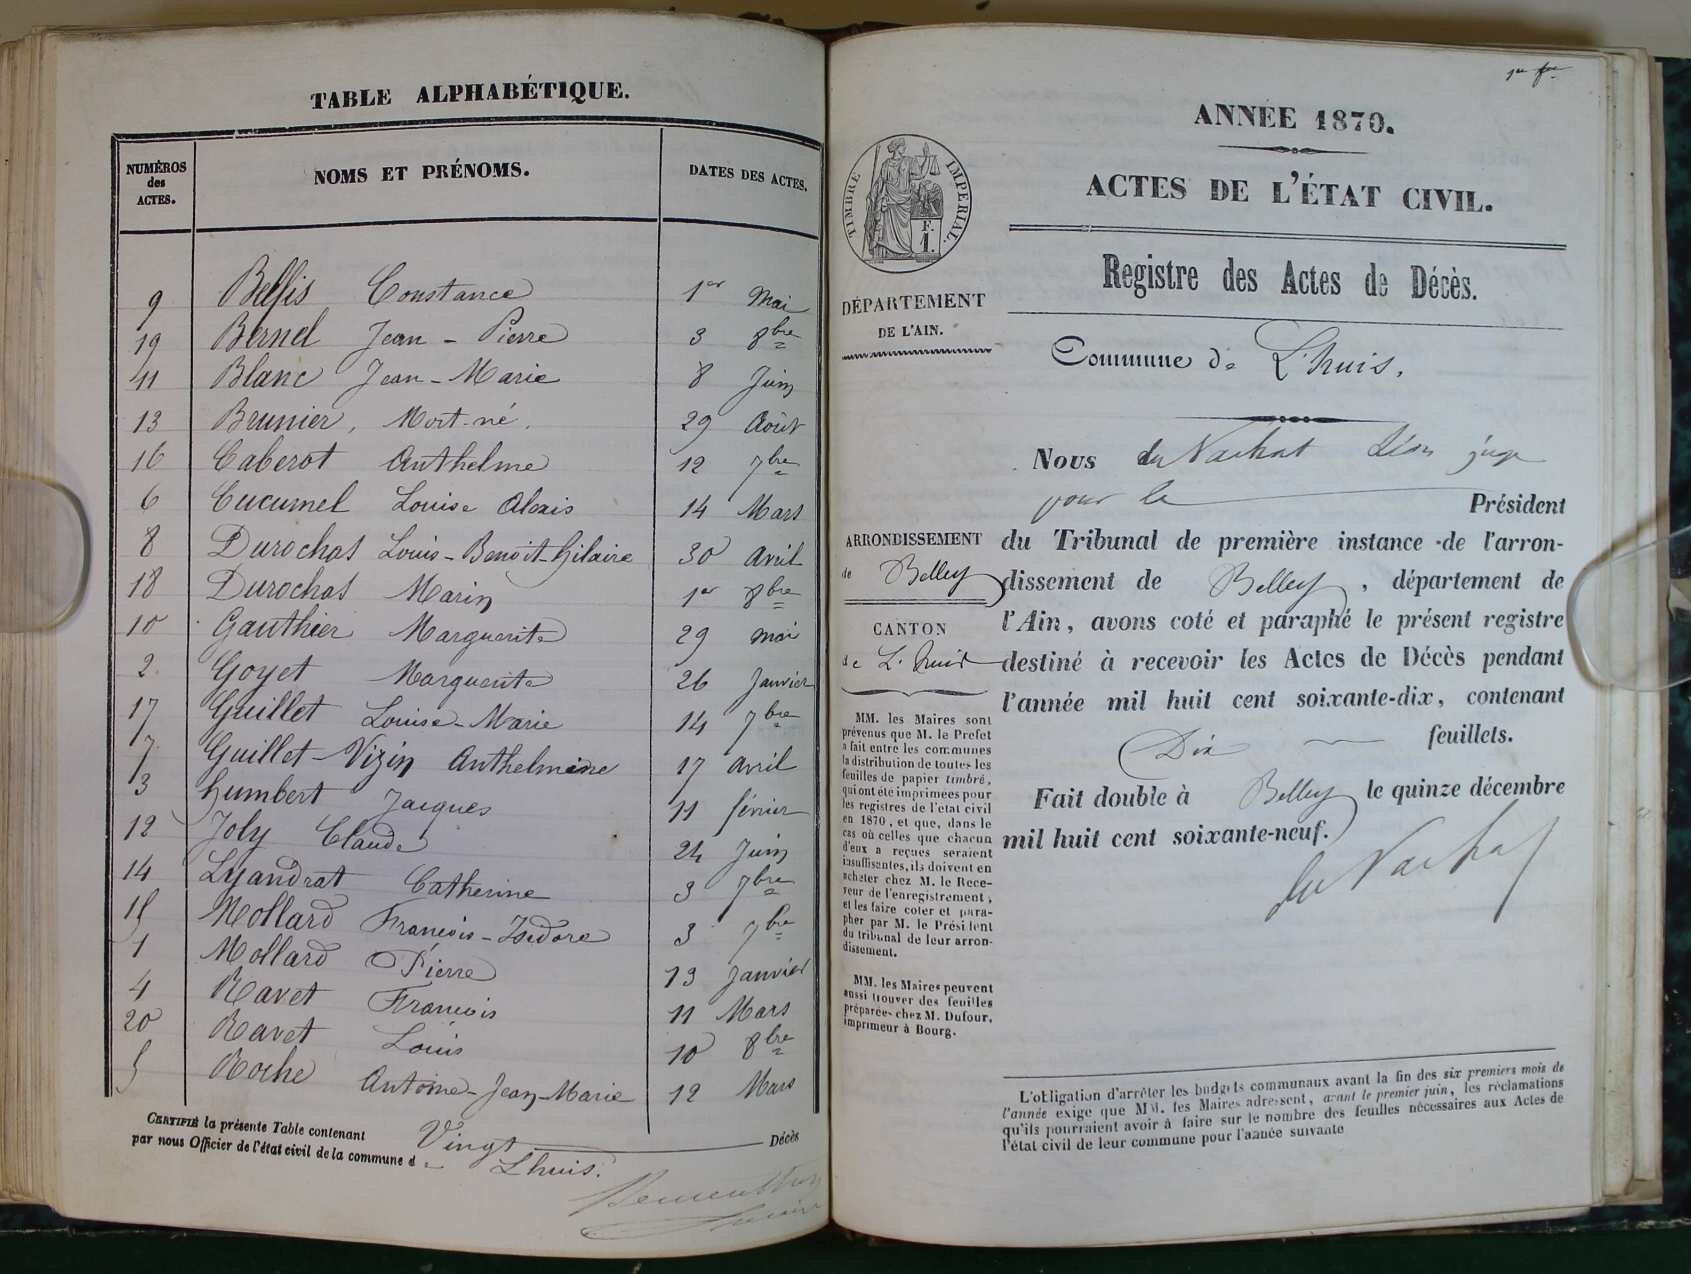 TABLE ALPHABÉTIQUE.
NUMÉROS des ACTES. NOMS ET PRÉNOMS. DATES DES ACTES.
9 Belfis Constance 1er Mai
19 Bernel Jean-Pierre 3 8bre
11 Blanc Jean-Marie 8 Juin
13 Brunier, Mort-né. 29 Août
16 Caberot Anthelme 12 7bre
6 Cucumel Louise Alexis 14 Mars
8 Durochat Louis-Benoit-hilaire 30 avril
18 Durochat Marin 1er 8bre
10 Gauthier Marguerite 29 mai
2. Goyet Marguerite 26 Janvier
17 Guillet Louise-Marie 14 7bre
7. Guillet-Vizin Anthelmine 17 avril
3 humbert Jacques 11 février
12 Joly Claude 24 Juin
14 Lyandrat Catherine 3 7bre
15 Mollard François-Isidore 3 7bre
1 Mollard Pierre 13 Janvier
4 Ravet François 11 Mars
20 Ravet Louis 10 8bre
5 Roche Antoine-Jean-Marie 12 Mars
CERTIFIÉ la présente Table contenant Vingt Décès
par nous Officier de l'état civil de la commune de Lhuis.
1er
ANNÉE 1870.
ACTES DE L'ÉTAT CIVIL.
TIMBRE IMPÉRIAL.
F. 1.
Registre des Actes de Décès.
DÉPARTEMENT
DE L'AIN.
Commune de L'huis.
Nous du Vachat Léon juge
pour le Président
ARRONDISSEMENT
de Belley
CANTON
de L'huis
du Tribunal de première instance de l'arron-
dissement de Belley, département de
l'Ain, avons coté et paraphé le présent registre
destiné à recevoir les Actes de Décès pendant
l'année mil huit cent soixante-dix, contenant
Dix feuillets.
Fait double à Belley le quinze décembre
mil huit cent soixante-neuf.
du Vachat
MM. les Maires sont
prévenus que M. le Prefet
a fait entre les communes
la distribution de toutes les
feuilles de papier timbré,
qui ont été imprimées pour
les registres de l'état civil
en 1870, et que, dans le
cas où celles que chacun
d'eux a reçues seraient
insuffisantes, ils doivent en
acheter chez M. le Rece-
veur de l'enregistrement,
et les faire coter et para-
pher par M. le Président
du tribunal de leur arron-
dissement.
MM. les Maires peuvent
aussi trouver des feuilles
préparées chez M. Dufour,
imprimeur à Bourg.
L'obligation d'arrêter les budgets communaux avant la fin des six premiers mois de
l'année exige que MM. les Maires adressent, avant le premier juin, les réclamations
qu'ils pourraient avoir à faire sur le nombre des feuilles nécessaires aux Actes de
l'état civil de leur commune pour l'année suivante